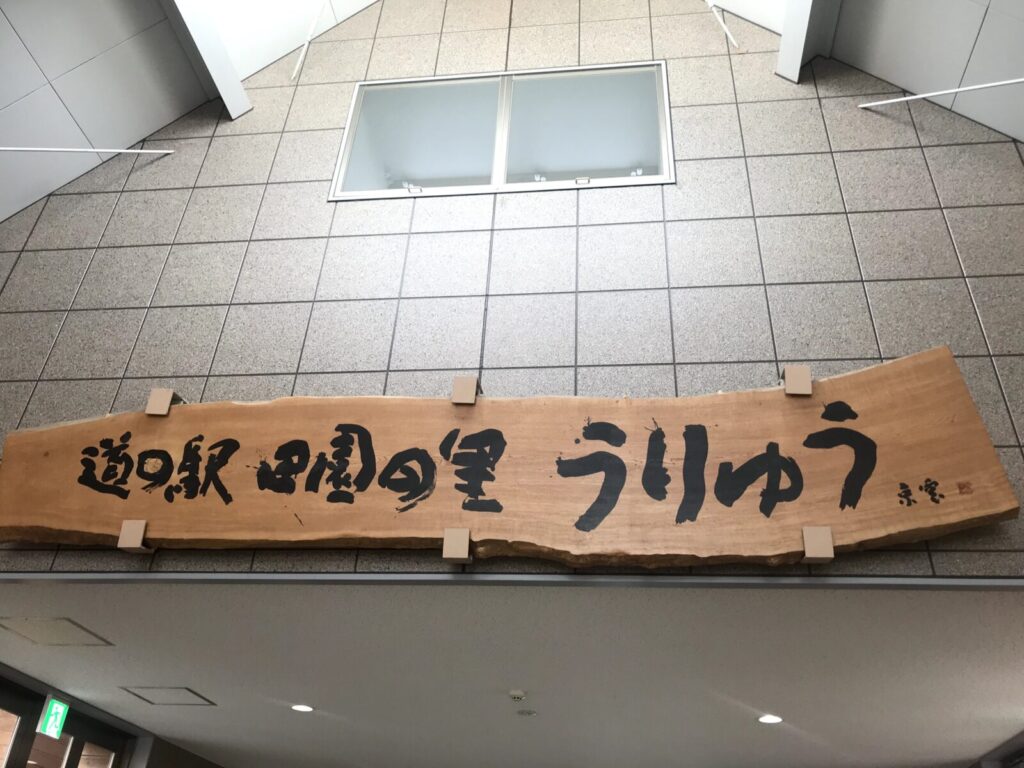 道の駅 田園の里 うりゅう 京雲